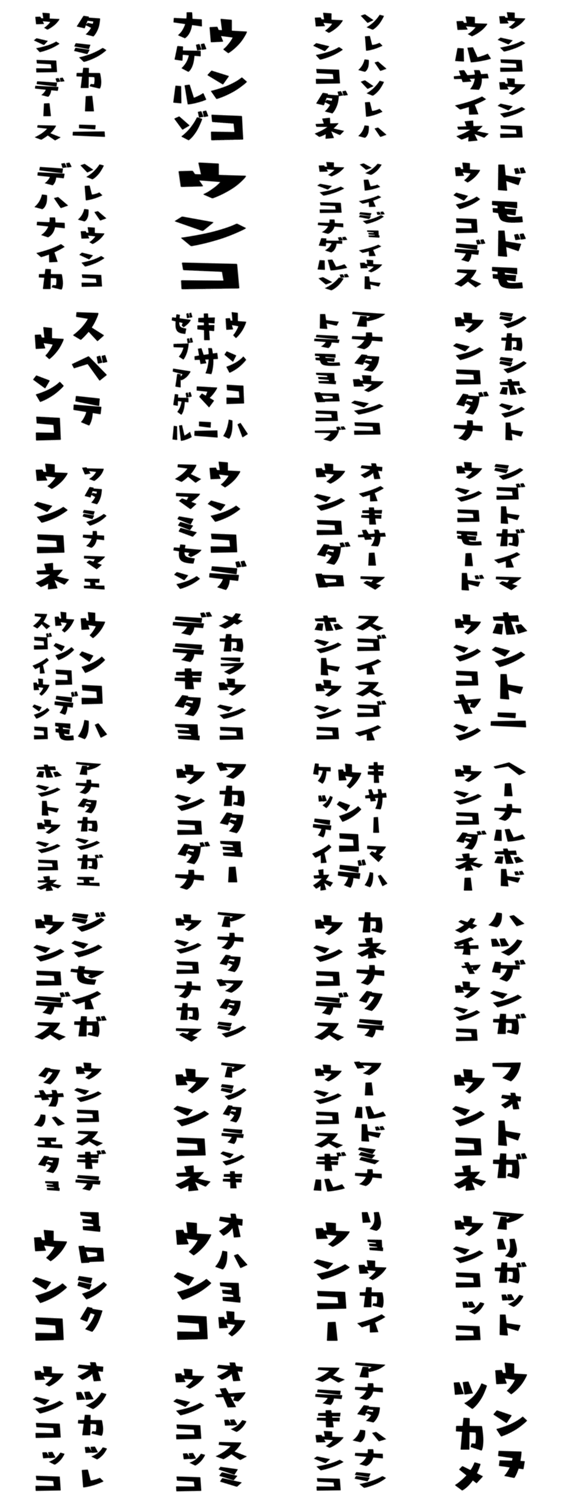 タシカーニ
ウンコデース
ウンコ
ナゲルゾ
ソレハソレハ
ウンコダネ
ウンコウンコ
ウルサイネ
ソレハウンコ
デハナイカ
ウンコ
ソレイジョイウト
ウンコナゲルゾ
ドモドモ
ウンコデス
スベテ
ウンコ
ウンコハ
キサマニ
ゼブアゲル
アナタウンコ
トテモヨロコブ
シカシホント
ウンコダナ
ワタシナマエ
ウンコネ
ウンコデ
スマミセン
オイキサーマ
ウンコダロ
シゴトガイマ
ウンコモード
ウンコハ
ウンコデモ
スゴイウンコ
メカラウンコ
デテキタヨ
スゴイスゴイ
ホントウンコ
ホントニ
ウンコヤン
アナタカンガエ
ホントウンコネ
ワカタヨー
ウンコダナ
キサーマハ
ウンコデ
ケッテイネ
ヘーナルホド
ウンコダネー
ジンセイガ
ウンコデス
アナタワタシ
ウンコナカマ
カネナクテ
ウンコデス
ハツゲンガ
メチャウンコ
ウンコスギテ
クサハエタョ
アシタテンキ
ウンコネ
ワールドミナ
ウンコスギル
フォトガ
ウンコネ
ヨロシク
ウンコ
オハヨウ
ウンコ
リョウカイ
ウンコー
アリガット
ウンコッコ
オツカッレ
ウンコッコ
オヤッスミ
ウンコッコ
アナタハナシ
ステキウンコ
ウンヲ
ツカメ